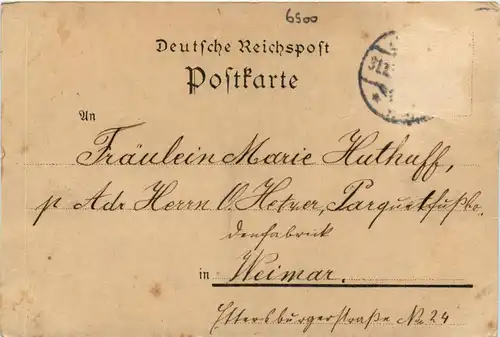 6500
Deutsche Reichspost
Postkarte
31.12
An
Fräulein Marie Huthuff,
p Adr Herrn O. Hetzer, Parquetfußbo-
denfabrick
in Weimar.
Ettersburgerstraße No 24